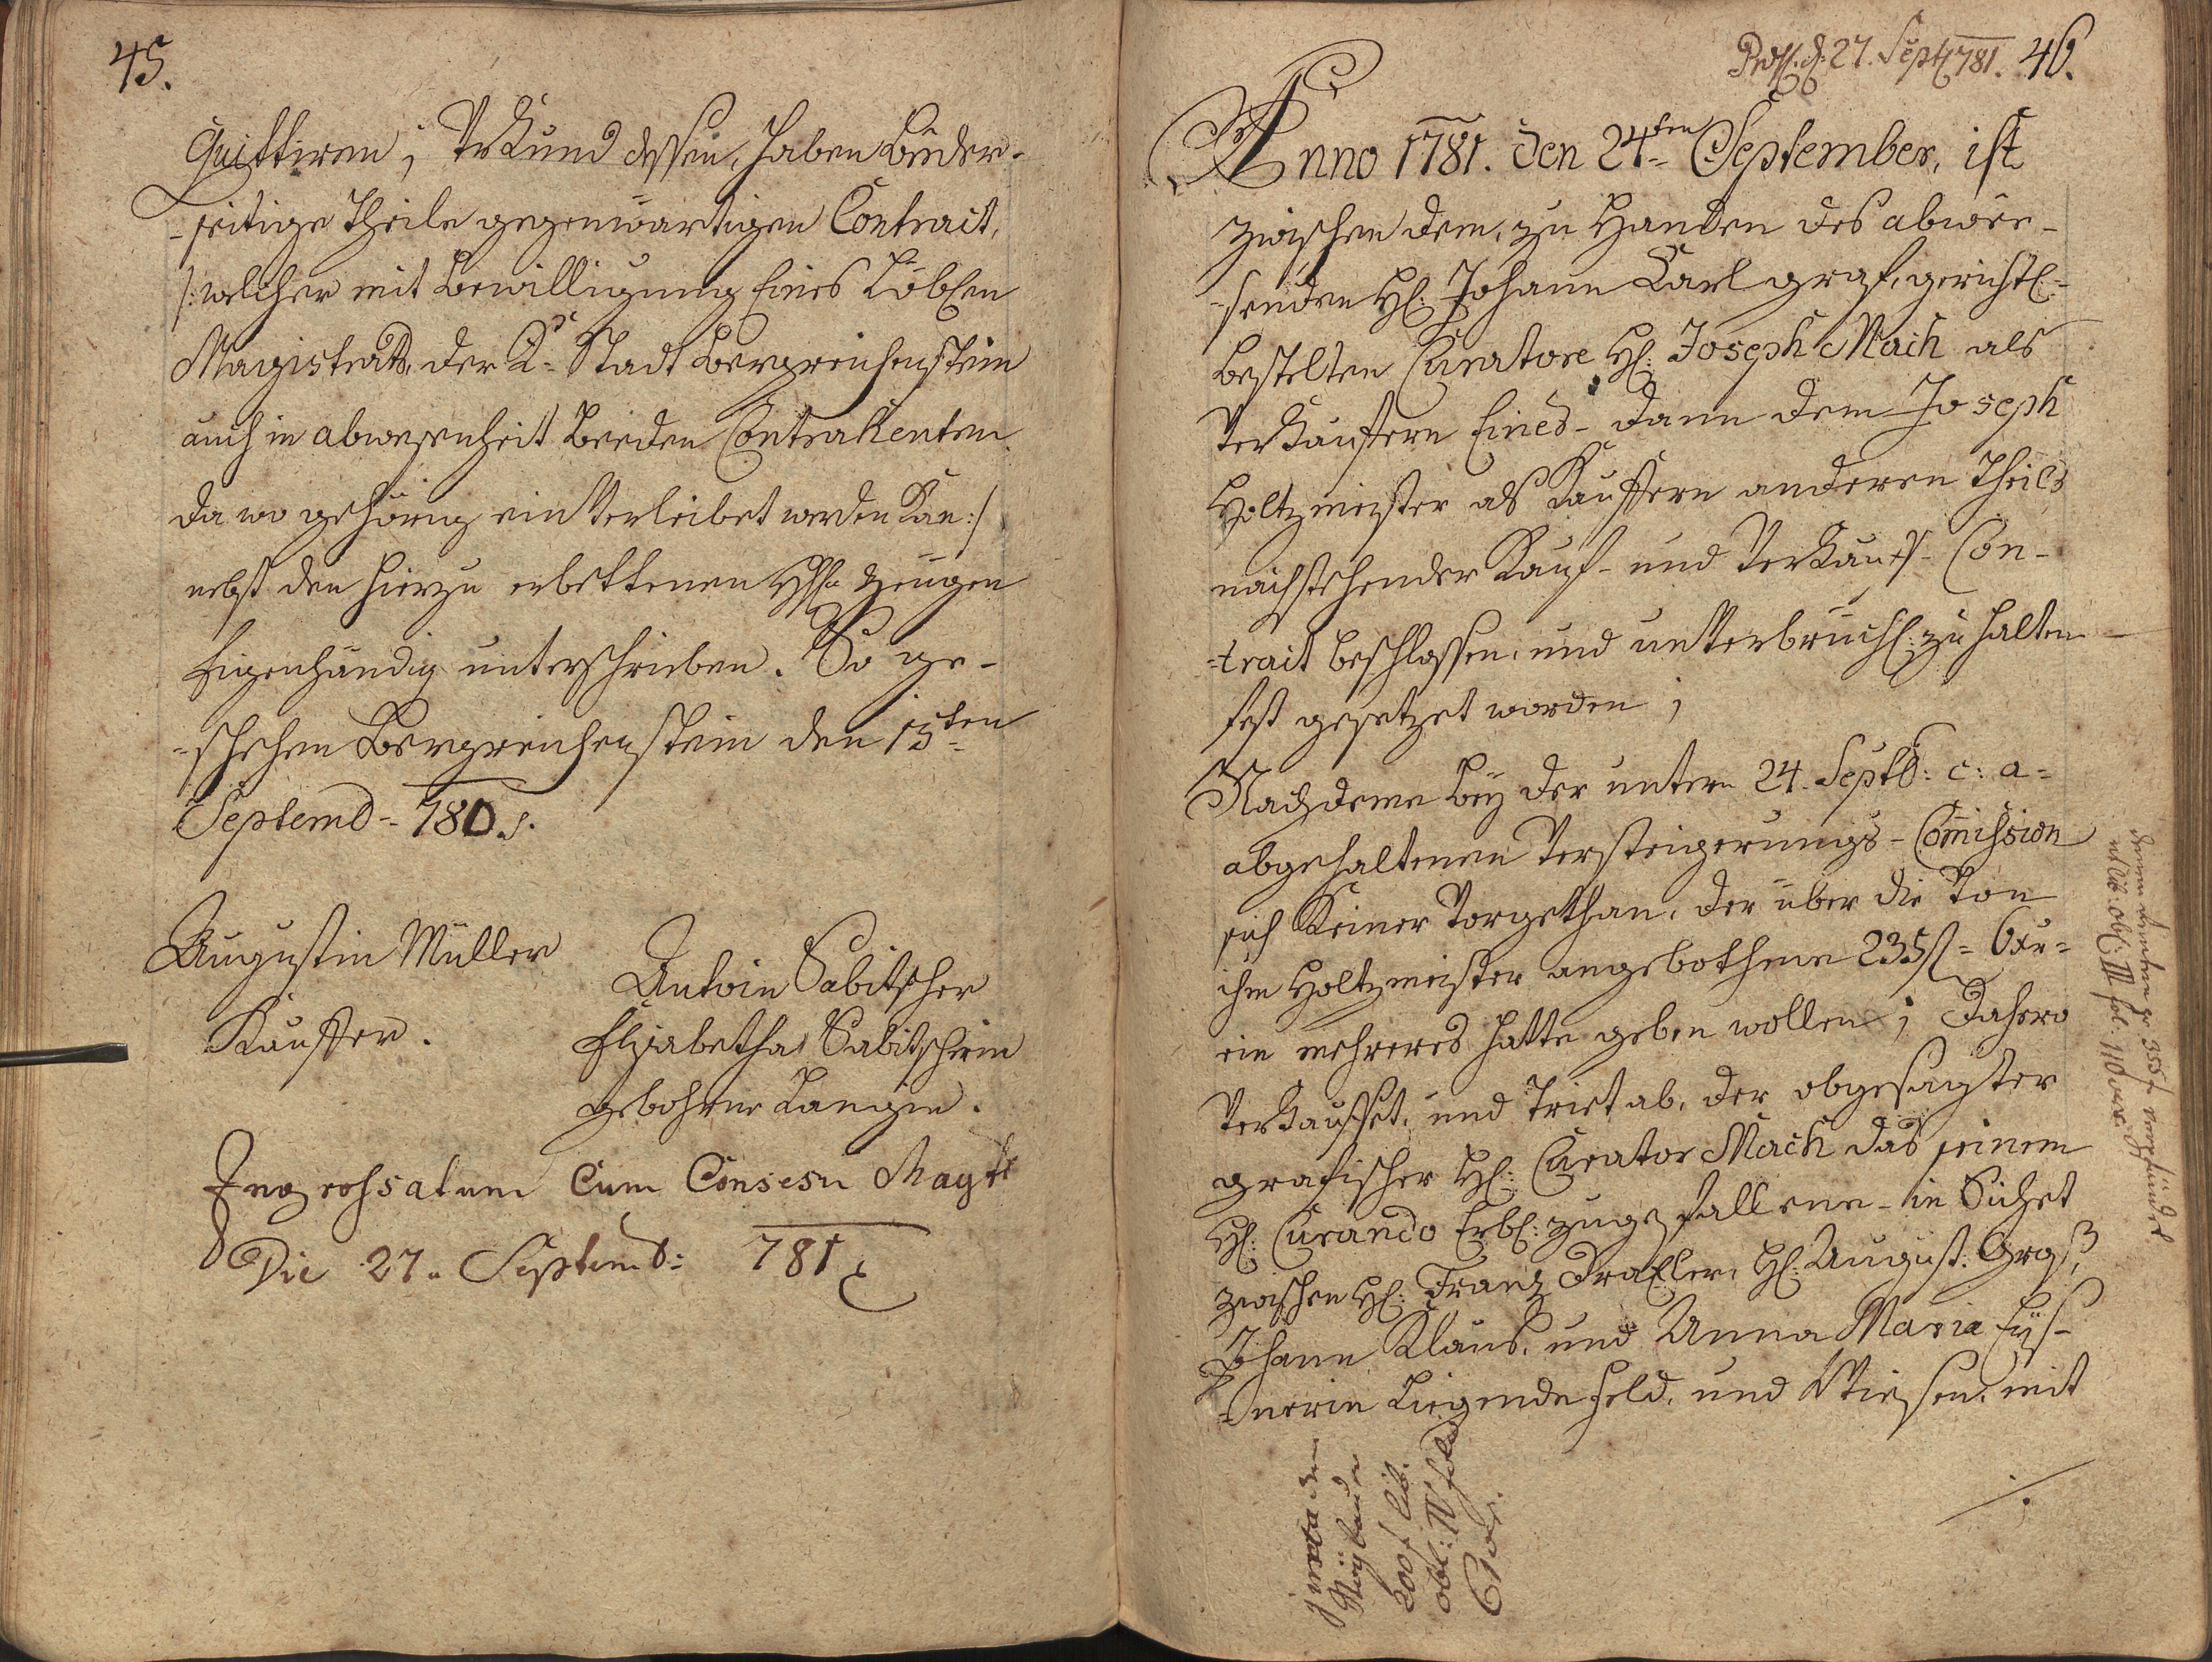 45.
Quittiren; Urkund dessen, haben beeder-
-seitige Theile gegenwärtigen Contract,
/: welcher mit Bewilligung Eines Löblen
Magistrats, der K: Stadt Bergreichenstein
auch in abwesenheit beeden Contrahenten
da wo gehörig einverleibet werden kan :/
nebst den hierzu erbettenen Zeugen
Eigenhändig unterschrieben. So ge-
-schehen Bergreichenstein den 15ten
Septemb- 780.
Augustin Müller
Kauffer.
Antoin Sabitscher
Elisabetha Sabitscherin
gebohrne Langin.
Ingrossatum Cum Consesu Magtt
Die 27. Septemb: 781
Pross. d. 27. Sept 781. 46.
Anno 1781. den 24ten September, ist
zwischen dem, zu Handen des abwee-
-senden H: Johann Carl graf, gerichtl:
bestelten Curatore H: Joseph Mach als
Verkäuffern Eines- dann dem Joseph
Holtzmeister als Kauffern anderen Theils
nachstehender Kauf- und Verkaufs- Con-
-tract beschlossen, und unverbrüchl: zu halten
fest gesetzet worden;
Nachdeme bey der untern 24. Septb: c: a:
abgehaltenen Versteigerungs-Comission
sich Keiner Vorgethan, der über die Von
ihm Holtzmeister angebothene 235 f: 6 xr:
ein mehreres hatte geben wollen; Dahero
Verkauffet, und Triet ab, der obgesagter
grafischer H: Curator Mach das seinem
H: Curando Erbl: zugefallene- in
zwischen H: Franz Draxler, H: August: Groß,
Johann Klaus, und Anna Maria Eys-
-nerin Liegende Feld, und Wiesen, mit
./.